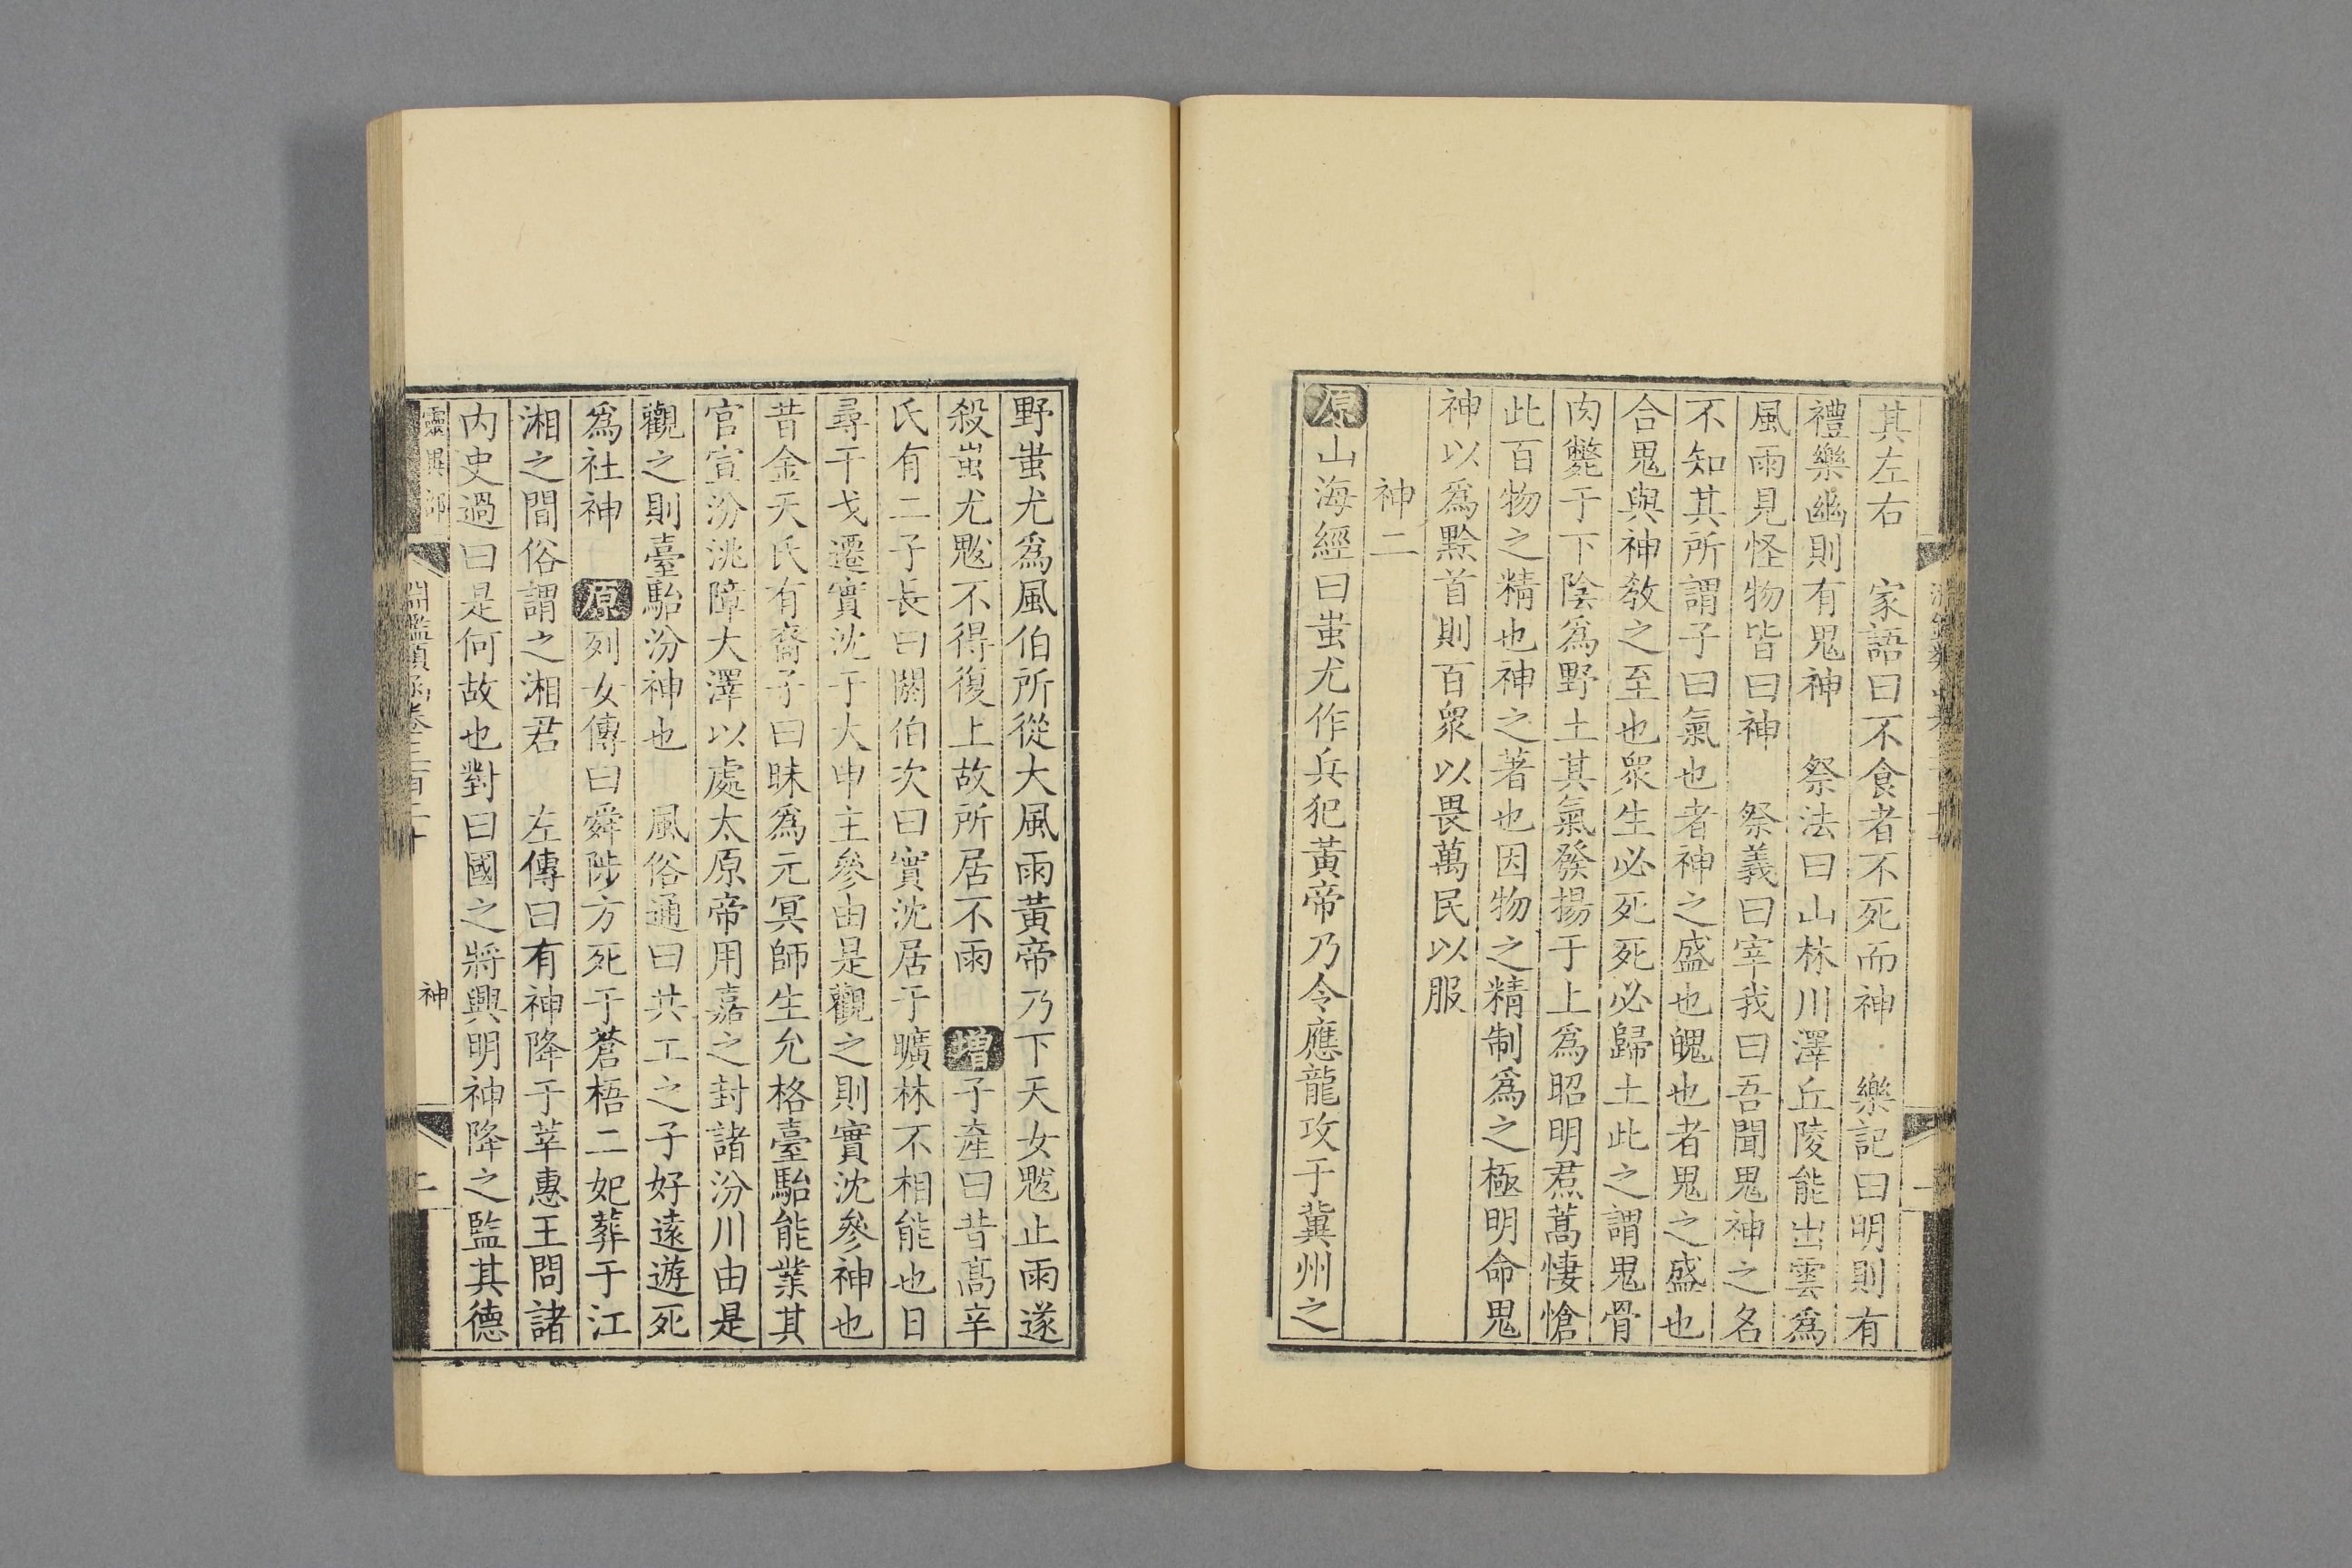 其左右　家語曰不食者不死而神　樂記曰明則有
禮樂幽則有鬼神　祭法曰山林川澤丘陵能出雲爲
風雨見怪物皆曰神　祭義曰宰我曰吾聞鬼神之名
不知其所謂子曰氣也者神之盛也魄也者鬼之盛也
合鬼與神教之至也衆生必死死必歸土此之謂鬼骨
肉斃于下陰爲野土其氣發揚于上爲昭明焄蒿悽愴
此百物之精也神之著也因物之精制爲之極明命鬼
神以爲黔首則百衆以畏萬民以服
神二
原山海經曰蚩尤作兵犯黃帝乃令應龍攻于冀州之
野蚩尤爲風伯所從大風雨黃帝乃下天女魃止雨遂
殺蚩尤魃不得復上故所居不雨　增子產曰昔高辛
氏有二子長曰閼伯次曰實沈居于曠林不相能也日
尋干戈遷實沈于大申主參由是觀之則實沈參神也
昔金天氏有裔子曰昧爲元冥師生允格臺駘能業其
官宣汾洮障大澤以處太原帝用嘉之封諸汾川由是
觀之則臺駘汾神也　風俗通曰共工之子好遠遊死
爲社神　原列女傳曰舜陟方死于蒼梧二妃葬于江
湘之間俗謂之湘君　左傳曰有神降于莘惠王問諸
內史過曰是何故也對曰國之將興明神降之監其德
靈異部
淵鑑類函卷三百二十
神
二